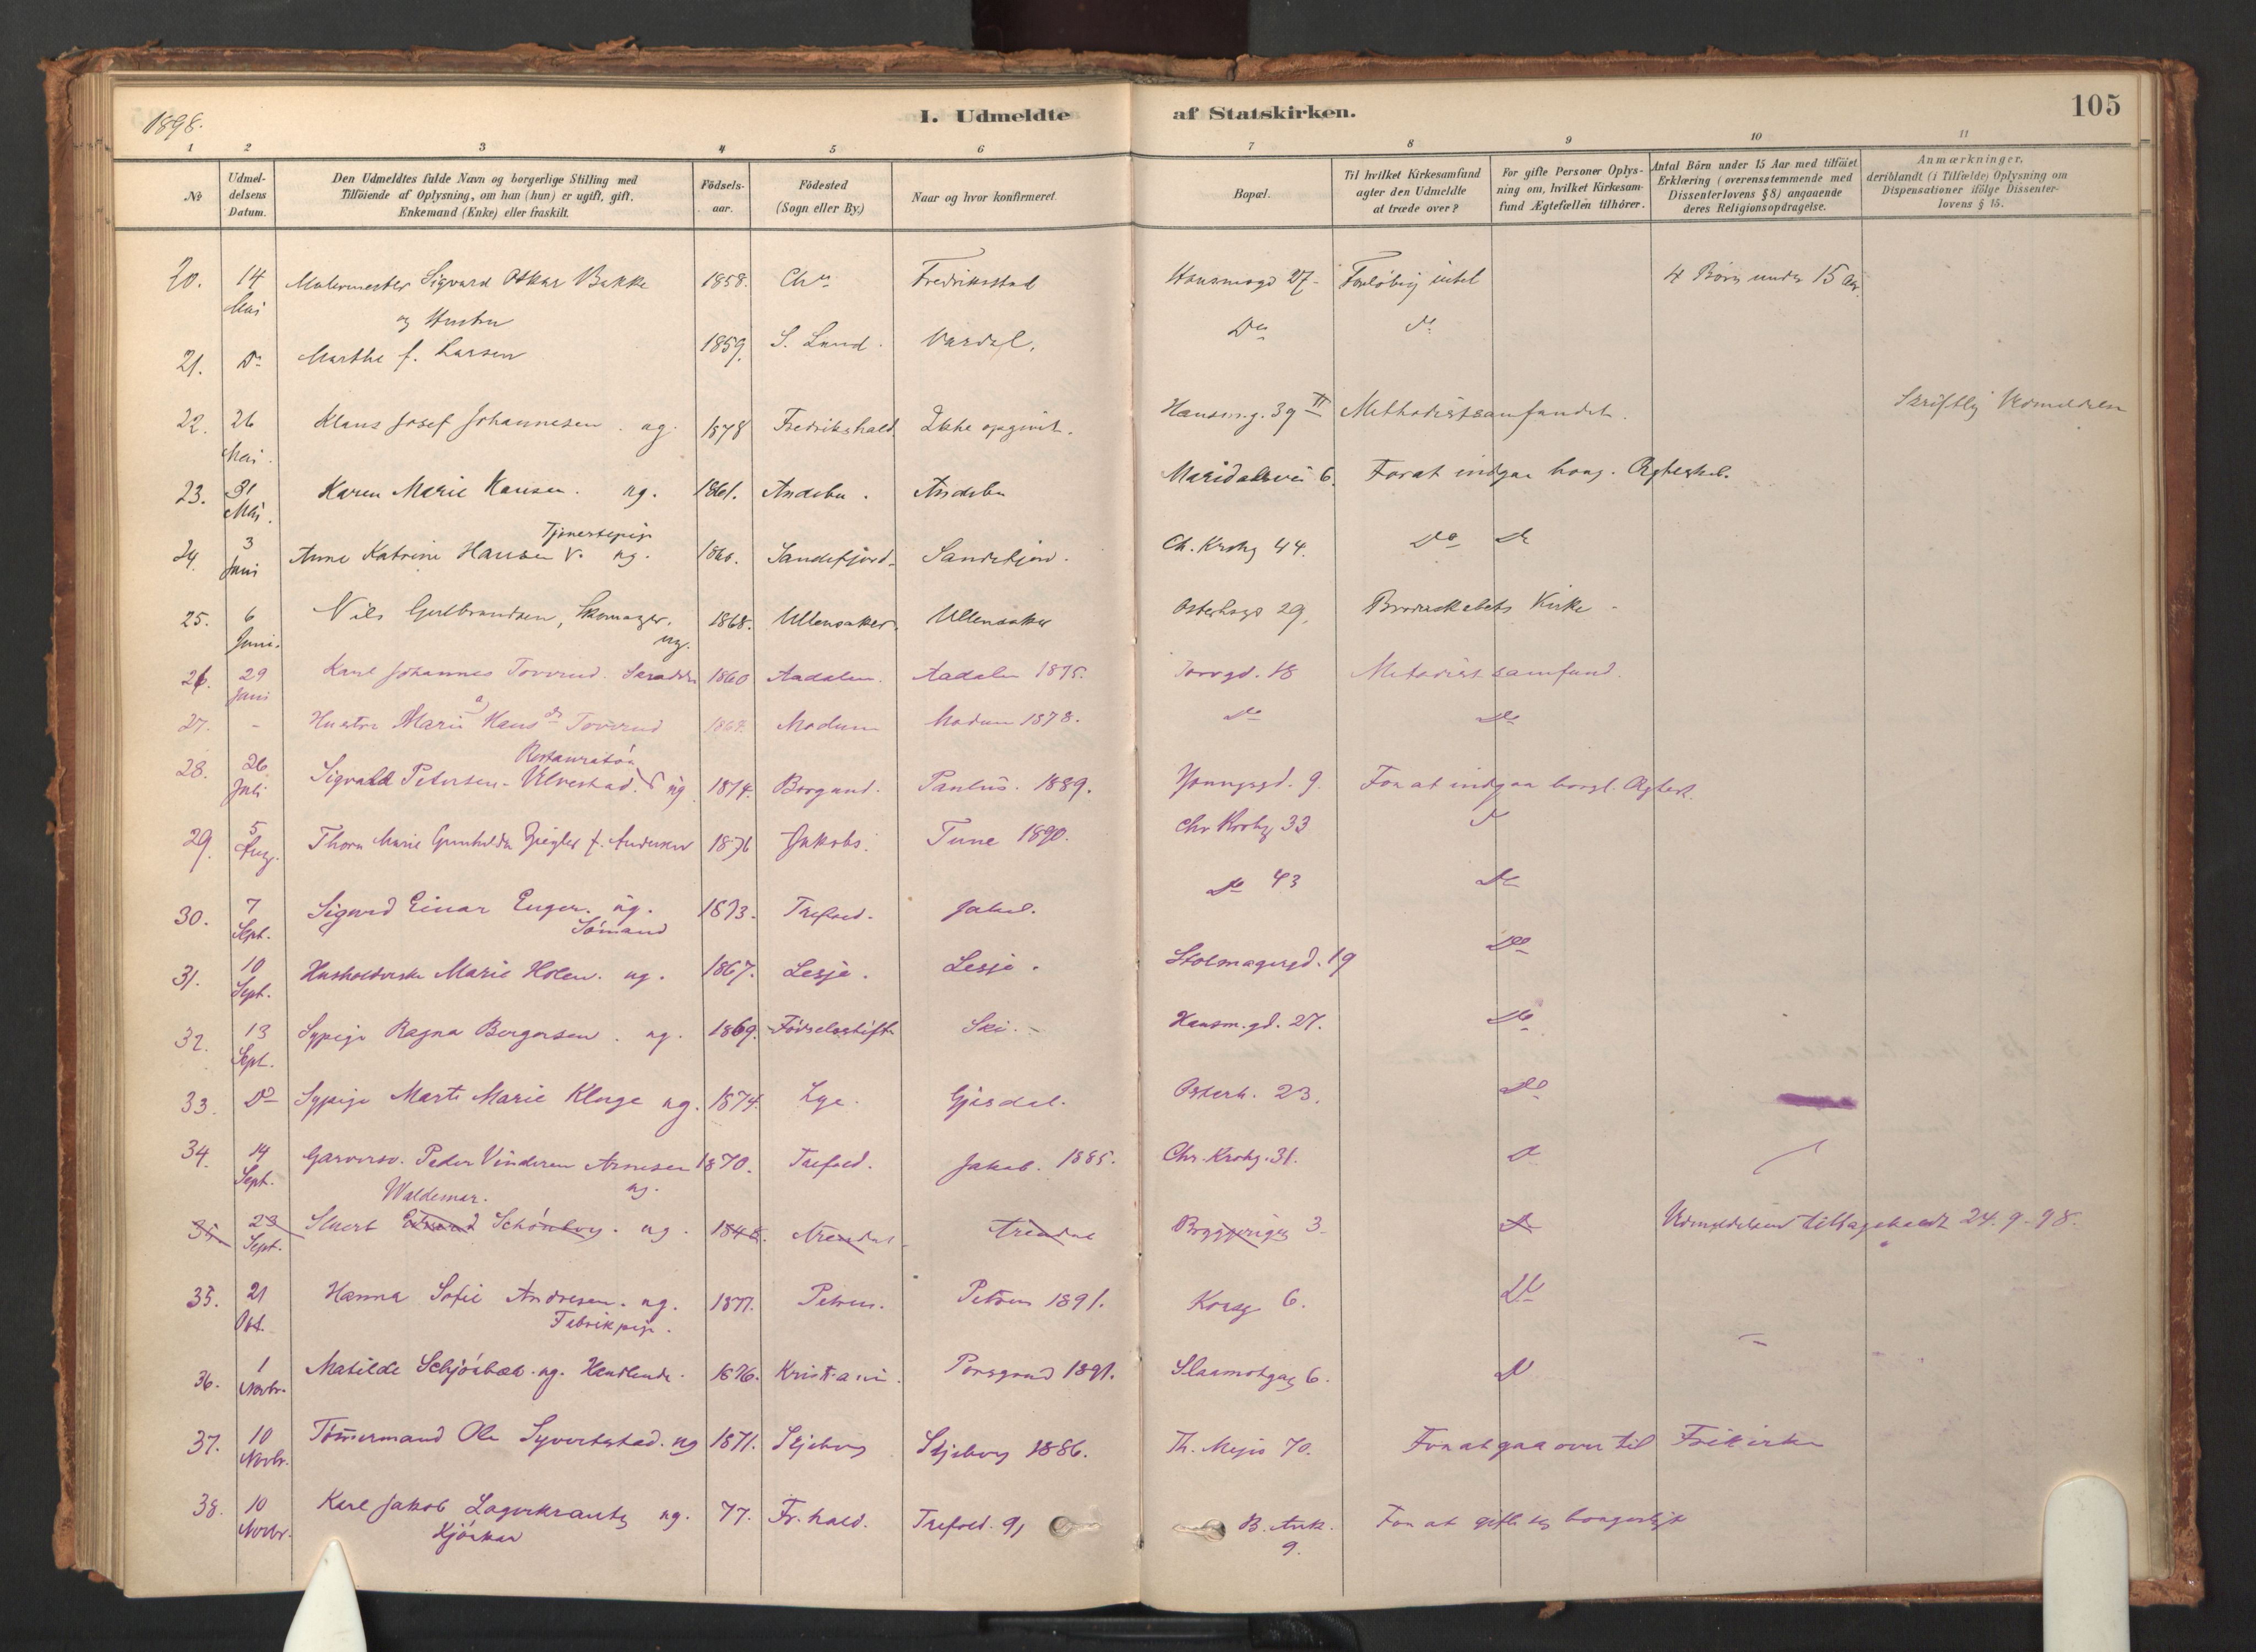 1898.
I. Udmeldte af Statskirken.
105
1 2 3 4 5 6 7 8 9 10 11
№
Udmel-
delsens
Datum.
Den Udmeldtes fulde Navn og borgerlige Stilling med
Tilföiende af Oplysning, om han (hun) er ugift, gift,
Enkemand (Enke) eller fraskilt.
Födsels-
aar.
Födested
(Sogn eller By.)
Naar og hvor konfirmeret.
Bopæl.
Til hvilket Kirkesamfund
agter den Udmeldte
at træde over?
For gifte Personer Oplys-
ning om, hvilket Kirkesam-
fund Ægtefællen tilhörer.
Antal Börn under 15 Aar med tilföiet
Erklæring (overensstemmende med
Dissenterlovens § 8) angaaende
deres Religionsopdragelse.
Anmærkninger,
deriblandt (i Tilfælde) Oplysning om
Dispensationer ifölge Dissenter-
lovens § 15.
20. 14 Malermester Sigvard Oskar Bakke 1858. Chr Fredriksstad Hausmsgd 27- Forlöbig intet 4 Börn under 15 Aar.
Mai og Hustru
21. Do Marthe f. Larsen 1859. S. Land. Vardal. Do do
22. 26 Klaus Josef Johannesen. ug. 1878 Fredrikshald. Ikke opgivet. Hausm.g. 39 II Methodistsamfundet. Skriftlig Udmeldelse
Mai.
23. 31 Karen Marie Hansen. ug. 1861. Andebu. Andebu Maridalsvei 6. For at indgaa borg. Ægteskab.
Mai.
Tjenestepige
24. 3 Anne Katrine Hansen ug. Sandefjord. Sandefjord. Ch. Krohg 44. Do Do
Juni
25. 6 Nils Gulbrandsen, Skomager. 1868. Ullensaker. Ullensaker Osterhsgd 29. Broderskabets Kirke -
Juni. ug.
26. 29 Karl Johannes Toverud. 1860 Aadalen. Aadalen 1875. Torvgd. 18 Metodistsamfund.
Juni
27. - Hustru Marie Hansdr Toverud Modum Modum 1878. Do Do
Restauratör
28. 26 Sigvald Petersen-Ulvestad. ug 1874. Borgund. Paulus. 1889. Youngsgd. 9. For at indgaa borgl. Ægtesk.
Juli
29. 5 Thora Marie Gunhilda Ziegler f. Andersen 1876 Jakobs. Tune 1890. Chr Krohg 33 Do
Aug.
30. 7 Sigurd Einar Enger. ug. 1873. Trefold. Jakob. Do 43 Do
Sept. Sömand
31. 10 Husholderske Marie Holen. ug. 1867. Lesje. Lesje. Stolmagergd. 19 Do
Sept.
32. 13 Sypige Ragna Borgersen. ug. 1869. Födselsstift. Ski. - Hausm.gd. 27. Do
Sept.
33. Do Sypige Marte Marie Kluge ug. 1874. Lye. Gjesdal. Osterh. 23. Do
34. 14 Garversv. Peder Vinderen Arnesen 1870. Trefold. Jakob. 1885. Chr. Krohg. 31. Do
Sept. ug.
Waldemar.
35. 23 Edvard Schönberg. ug. 1848. Arendal Arendal Bryggerigd 3. Do Udmeldelsen tilbagekaldt 24.9-98.
Sept.
35. 21 Hanna Sofie Andresen. ug. 1877. Petrus. Petrus 1891. Korsg 6. Do
Okt. Fabrikpige.
36. 1 Matilde Schjösbæk. ug. Handlende. 1876. Kristiania. Porsgrund 1891. Slaamotgag 6. Do
Novbr.
37. 10 Tömmermand Ole Syvertstad. ug 1871. Skjeberg Skjeberg 1886. Th. Meyrs 70. For at gaa over til Frikirken
Novbr.
38. 10 Karl Jakob Lagerkrantz ug. 77. Fr. hald. Trefold. 91 B. Ank. 9. For at gifte sig borgerligt
Novbr. Kjörkar